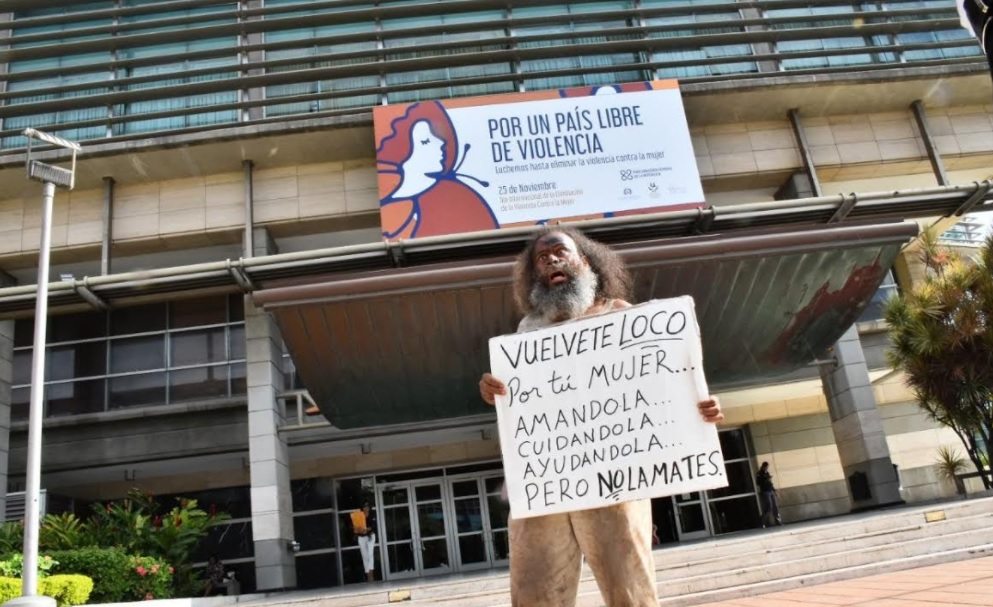 POR UN PAÍS LIBRE
DE VIOLENCIA
Luchemos hasta eliminar la violencia contra la mujer
25 de Noviembre
Día Internacional de la Eliminación
de la Violencia Contra la Mujer
PROCURADURÍA GENERAL
DE LA REPÚBLICA
VUELVETE LOCO
Por tú MUJER...
AMANDOLA...
CUIDANDOLA...
AYUDANDOLA...
PERO NO LA MATES.